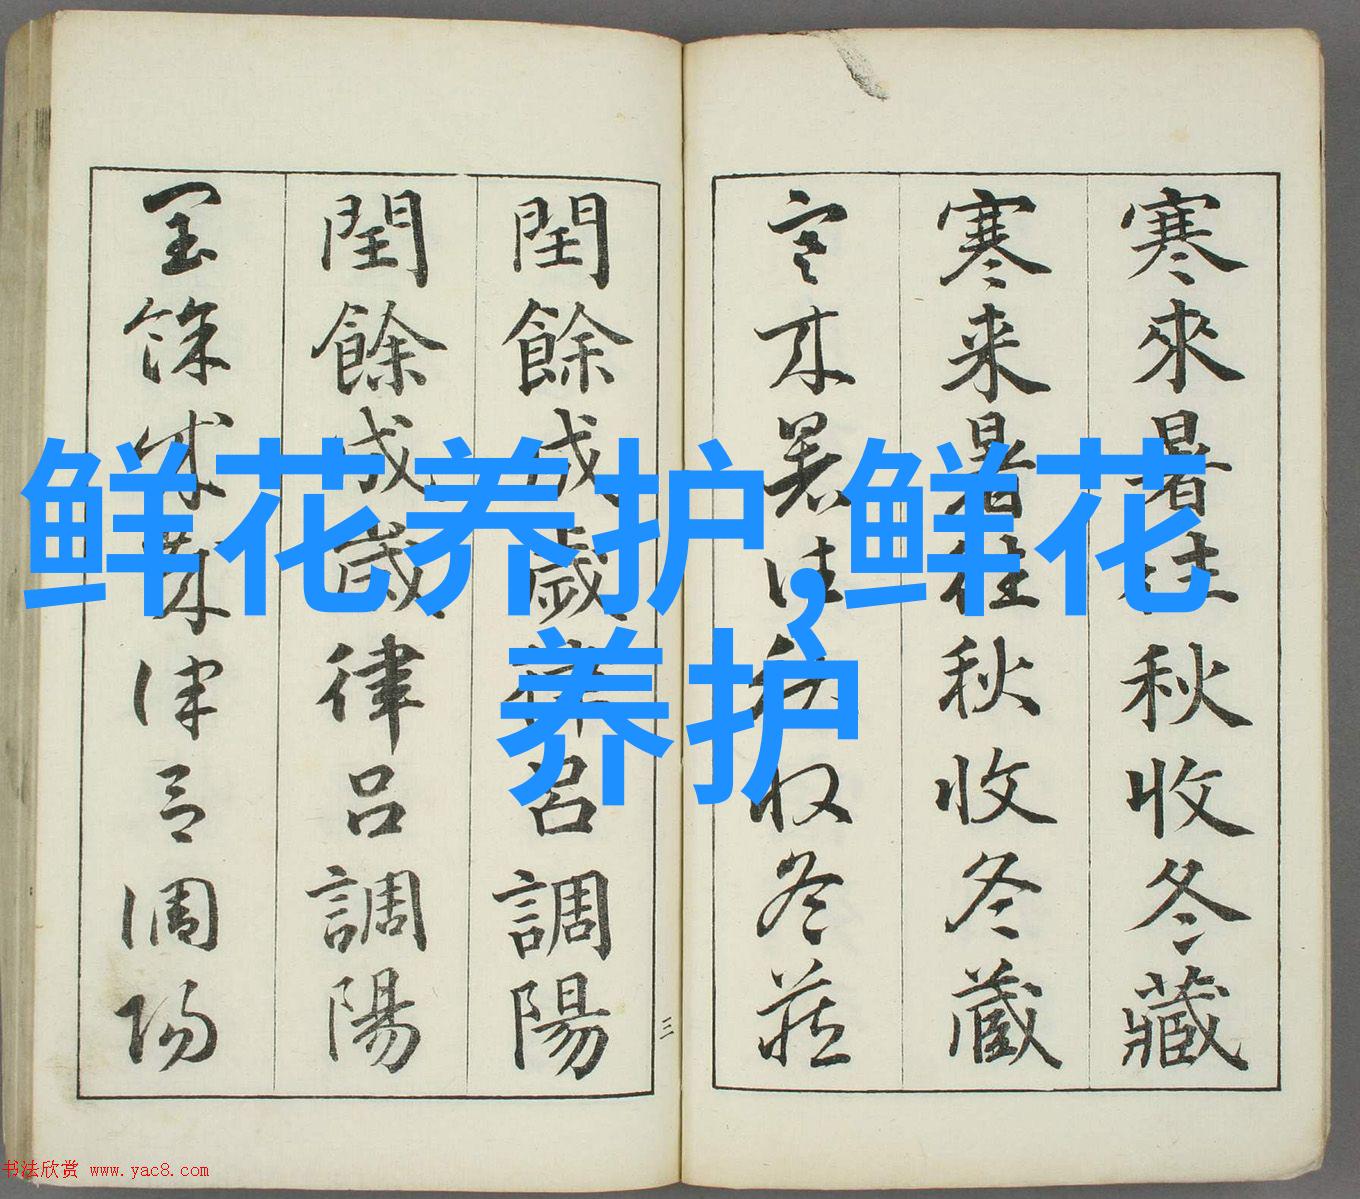 寒來暑往秋收冬藏
寒来暑往秋收冬蔵
寒来暑往秋收冬藏
閏餘成歲律召調陽
閏餘成歲律呂調陽
閏餘成歲律呂調陽
三
鲜花养护,鲜花
养护
书法欣赏 www.yac8.com